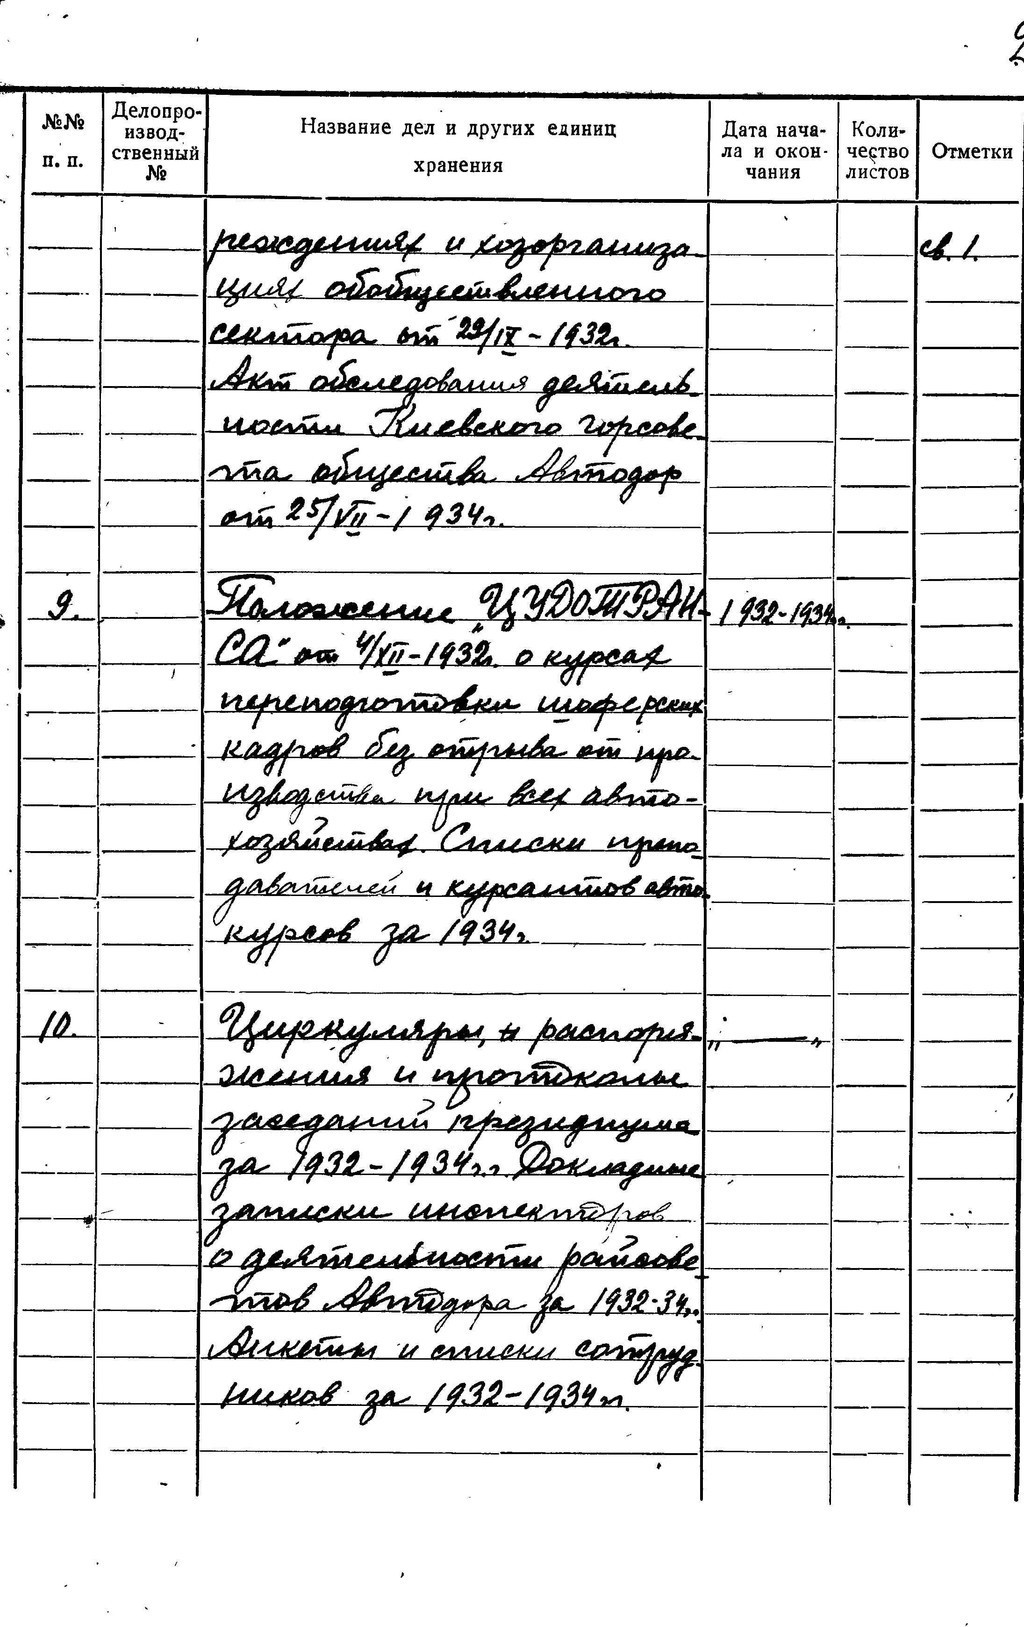 2
№№ п. п.
Делопро-извод-ственный №
Название дел и других единиц хранения
Дата нача-ла и окон-чания
Коли-чество листов
Отметки
реждениях и хозорганиза- св. 1.
циях обобществленного
сектора от 29/IX-1932г.
Акт обследования деятель-
ности Киевского горсове-
та общества Автодор
от 25/VII-1934г.
9. Положение „ЦУДОТРАН- 1932-1934гг.
СА" от 4/XII-1932г. о курсах
переподготовки шоферских
кадров без отрыва от про-
изводства при всех авто-
хозяйствах. Списки препо-
давателей и курсантов авто-
курсов за 1934г.
10. Циркуляры, распоря- „ — „
жения и протоколы
заседаний президиума
за 1932-1934г.г. Докладные
записки инспекторов
о деятельности райсове-
тов Автодора за 1932-34гг.
Анкеты и списки сотруд-
ников за 1932-1934гг.